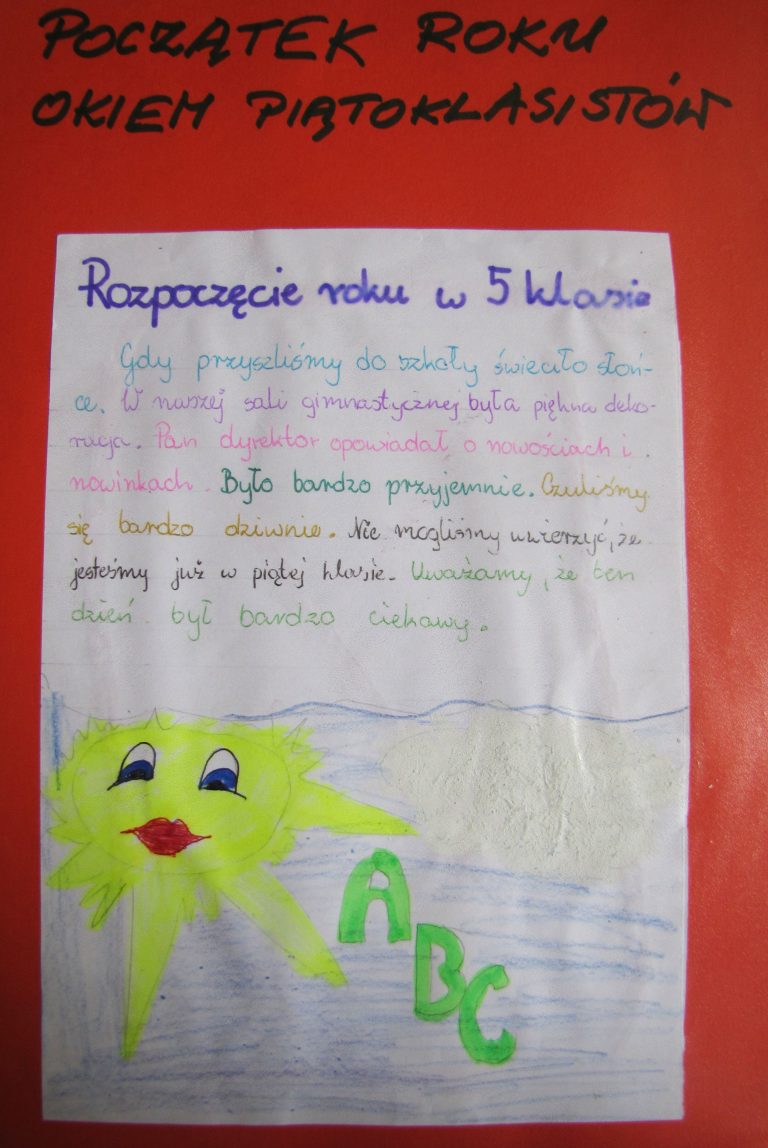 POCZĄTEK ROKU
OKIEM PIĄTOKLASISTÓW
Rozpoczęcie roku w 5 klasie
Gdy przyszliśmy do szkoły świeciło słoń-
ce. W naszej sali gimnastycznej była piękna deko-
racja. Pan dyrektor opowiadał o nowościach i
nowinkach. Było bardzo przyjemnie. Czuliśmy
się bardzo dziwnie. Nie mogliśmy uwierzyć, że
jesteśmy już w piątej klasie. Uważamy, że ten
dzień był bardzo ciekawy.
ABC